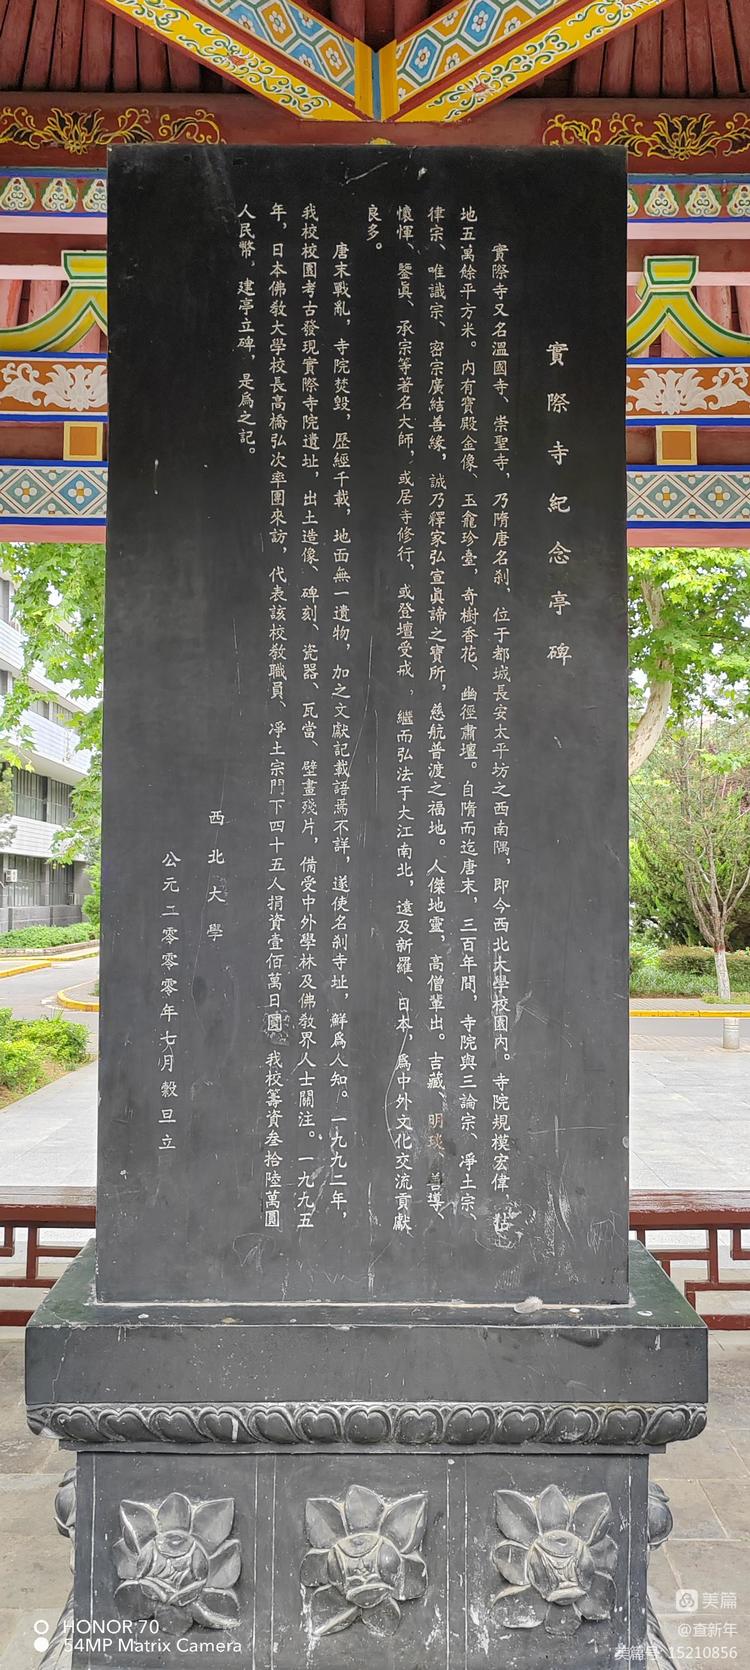 實際寺紀念亭碑
實際寺又名溫國寺、崇聖寺，乃隋唐名剎，位于都城長安太平坊之西南隅，即今西北大學校園內。寺院規模宏偉，佔
地五萬餘平方米。內有寶殿金像、玉龕珍臺，奇樹香花、幽徑肅壇。自隋而迄唐末，三百年間，寺院與三論宗、淨土宗、
律宗、唯識宗、密宗廣結善緣，誠乃釋家弘宣眞諦之寶所，慈航普渡之福地。人傑地靈，高僧輩出。吉藏、明琰、善導、
懷惲、鑒眞、承宗等著名大師，或居寺修行，或登壇受戒，繼而弘法于大江南北，遠及新羅、日本，爲中外文化交流貢獻
良多。
唐末戰亂，寺院焚毀，歷經千載，地面無一遺物，加之文獻記載語焉不詳，遂使名剎寺址，鮮爲人知。一九九二年，
我校校園考古發現實際寺院遺址，出土造像、碑刻、瓷器、瓦當、壁畫殘片，備受中外學林及佛教界人士關注。一九九五
年，日本佛教大學校長高橋弘次率團來訪，代表該校教職員、淨土宗門下四十五人捐資壹佰萬日圓，我校籌資叁拾陸萬圓
人民幣，建亭立碑，是爲之記。
西北大學
公元二零零零年七月穀旦立
HONOR 70
54MP Matrix Camera
美篇
@查新年
美篇号: 15210856